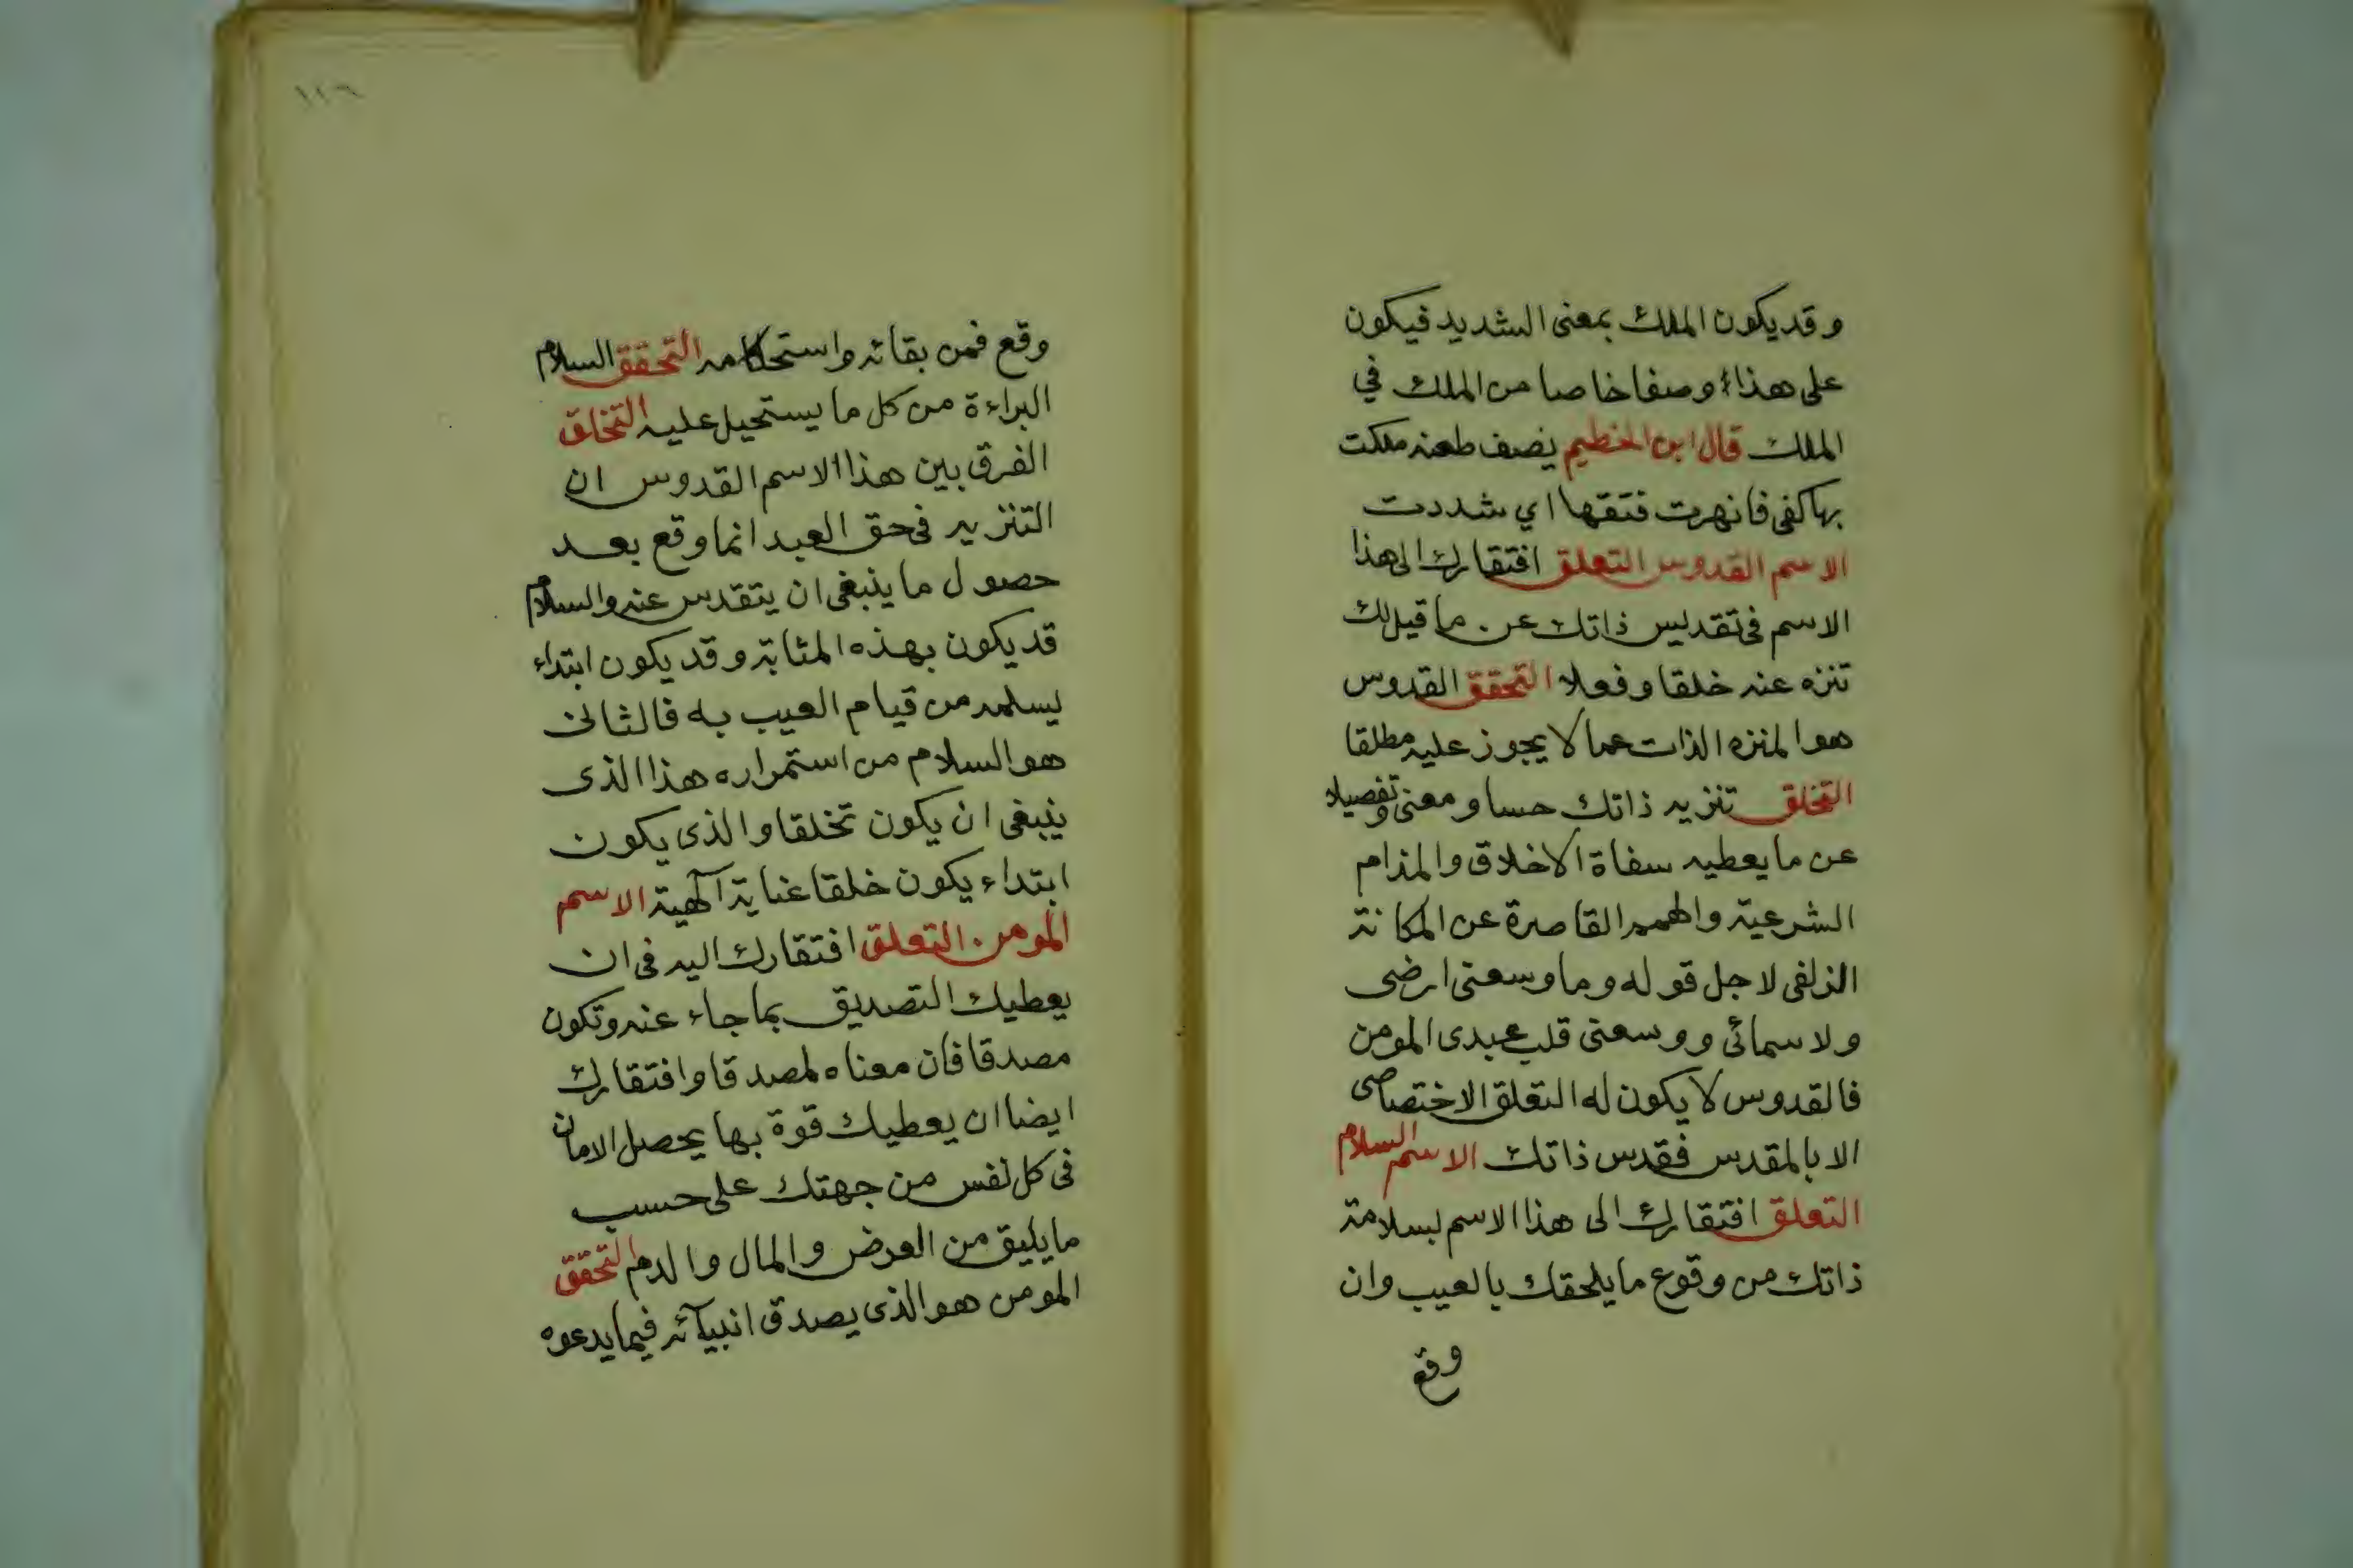 وقد يكون الملك بمعنى الشديد فيكون
على هذا وصفا خاصا من الملك في
الملك قال ابن الخطيم يصف طعنه ملكت
بها كفى فانهرت فتقها اي شددت
الاسم القدوس التعلق افتقارك الى هذا
الاسم فى تقديس ذاتك عن ما قيل لك
تنزه عنه خلقا وفعلا التحقق القدوس
هو المنزه الذات عما لا يجوز عليه مطلقا
التخلق تنزيه ذاتك حسا ومعنى وتفصيلا
عن ما يعطيه سفاة الاخلاق والمذام
الشرعية والهمم القاصرة عن المكانة
الزلفى لاجل قوله وما وسعنى ارضى
ولا سمائى ووسعنى قلب عبدى المومن
فالقدوس لا يكون له التعلق الاختصاصى
الا بالمقدس فقدس ذاتك الاسم السلام
التعلق افتقارك الى هذا الاسم لسلامة
ذاتك من وقوع ما يلحقك بالعيب وان
وقع
١١٦
وقع فمن بقائه واستحكامه التحقق السلام
البراءة من كل ما يستحيل عليه التخلق
الفرق بين هذا الاسم القدوس ان
التنزيه فى حق العبد انما وقع بعد
حصول ما ينبغى ان يتقدس عنه والسلام
قد يكون بهذه المثابة وقد يكون ابتداء
يسلمه من قيام العيب به فالثانى
هو السلام من استمراره هذا الذى
ينبغى ان يكون تخلقا والذى يكون
ابتداء يكون خلقا عناية آلهية الاسم
المومن التعلق افتقارك اليه فى ان
يعطيك التصديق بما جاء عنه وتكون
مصدقا فان معناه لمصدقا وافتقارك
ايضا ان يعطيك قوة بها يحصل الامان
فى كل نفس من جهتك على حسب
ما يليق من العرض والمال والدم التحقق
المومن هو الذى يصدق انبيآئه فيما يدعوه